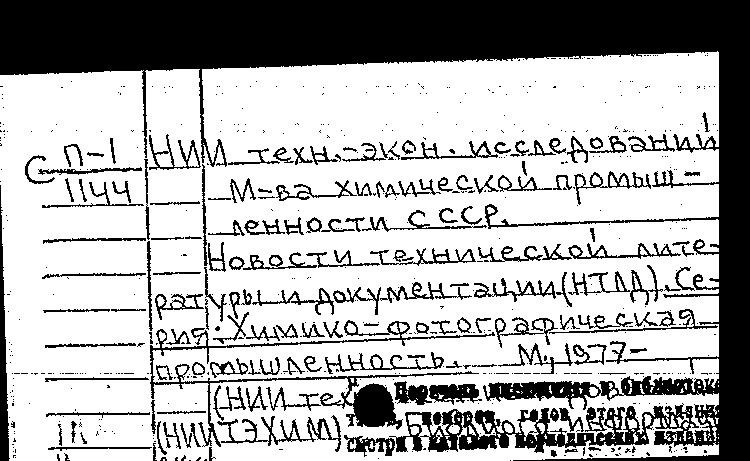 С П-1 НИИ техн.-экон. исследований
1144 М-ва химической промыш-
ленности СССР.
Новости технической лите-
ратуры и документации (НТЛД). Се-
рия: Химико-фотографическая
промышленность. М., 1977-
(НИИ тех Перечень имеющихся в библиотеке
(НИИТЭХИМ) номеров, годов этого издания
смотри в каталоге периодических изданий